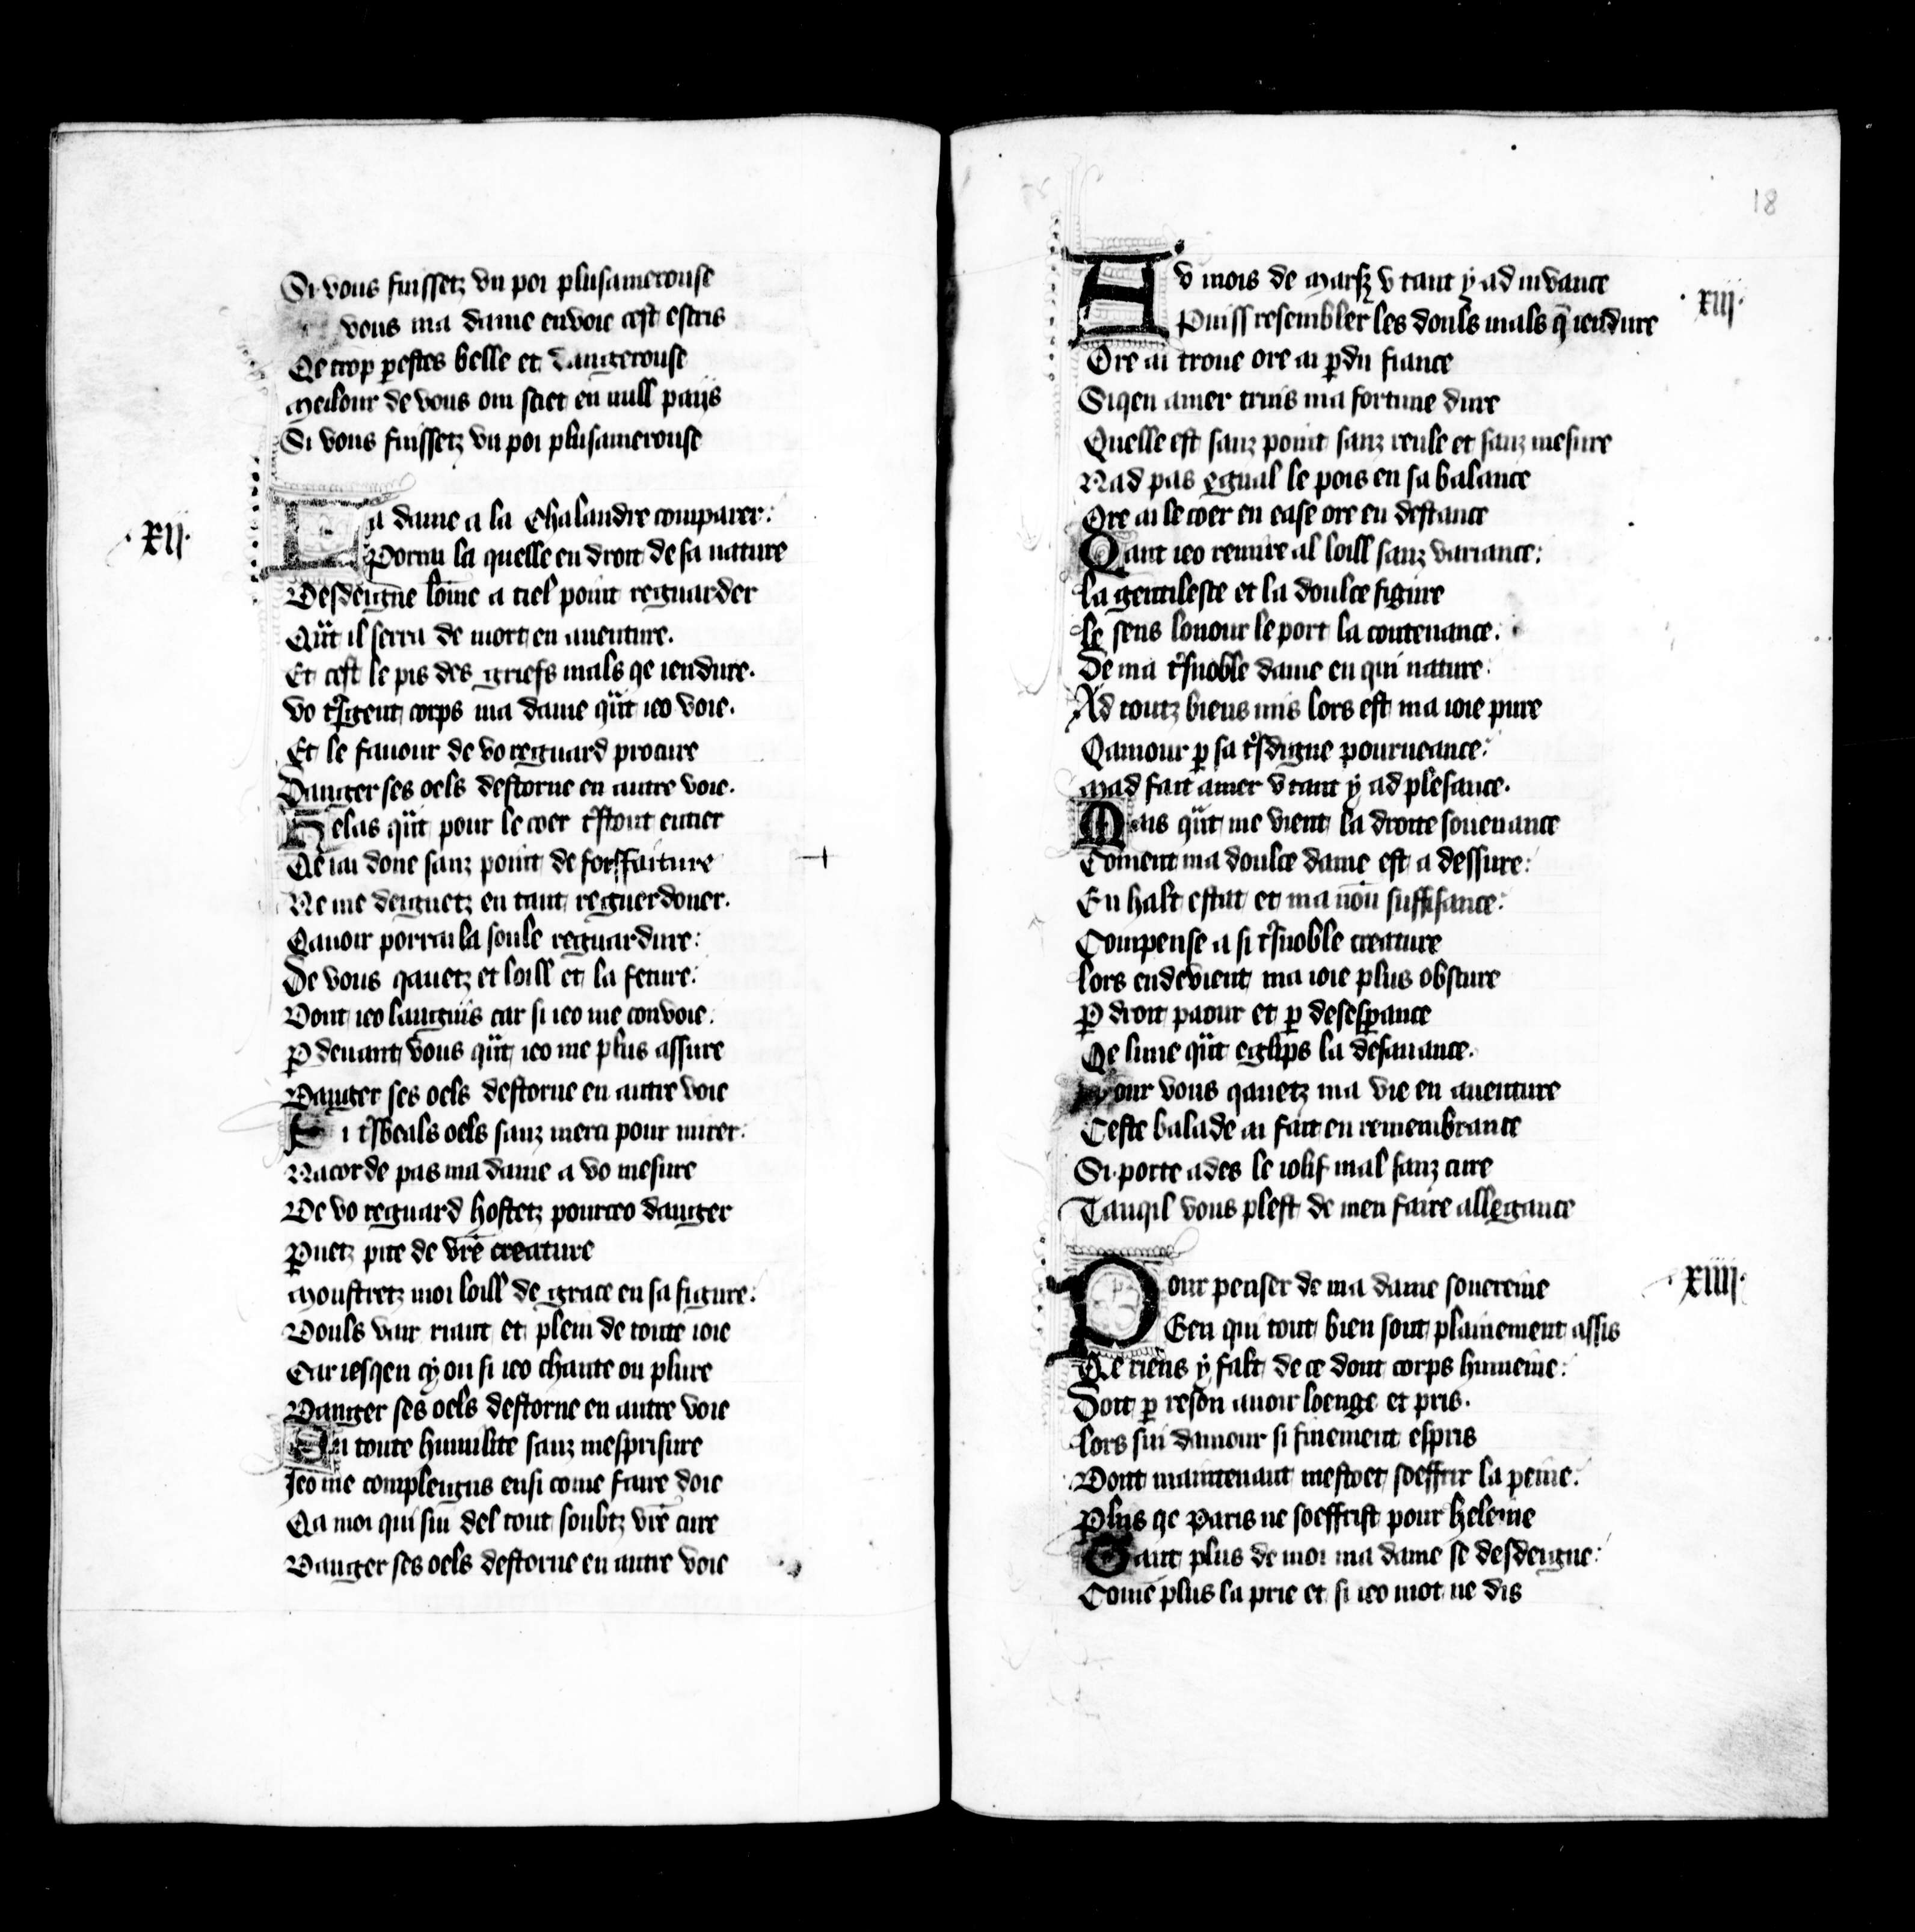 Si vous fuissetz vn poi plusamerouse
vous ma dame envoie cest escris
Qe trop ꝑestes belle et dangerouse
Meilour de vous om sciet en null paijs
Si vous fuissetz vn poi plusamerouse
·XII·
La dame a la Chalandre comparer:
Porrai la quelle en droit de sa nature
Desdeigne lōme a tiel point reguarder
Qūt il serra de mort en auenture.
Et cest le pis des griefs mals qe iendure.
Vo tͬsgent corps ma dame qūt ieo voie.
Et le fauour de vo reguard procure
Danger ses oels destorne en autre voie.
Helas qūt pour le coer tͬstout entier
Qe iai done sanz point de forsfaiture
Ne me deignetz en tant reguerdoner.
Qauoir porrai la soule reguardure:
De vous qauetz et loill et la feture:
Dont ieo languis car si ieo me convoie:
ꝑ deuant vous qūt ieo me plus assure
Danger ses oels destorne en autre voie
Si tͬsbeals oels sanz merci pour mirer:
Nacorde pas ma dame a vo mesure
De vo reguard hostetz pourceo danger
ꝑnetz pite de vr̄e creature
Moustretz moi loill de grace en sa figure:
Douls vair riant et plein de toute ioie
Car iesqen cy ou si ieo chante ou plure
Danger ses oels destorne en autre voie
En toute humilite sanz mesprisure
Jeo me compleigns ensi come faire doie
Qa moi qui sui del tout soubtz vr̄e cure
Danger ses oels destorne en autre voie
18
Av mois de Marsz v tant y ad muance
Puiss resembler les douls mals q̄ iendure
·XIII·
Ore ai troue ore ai ꝑdu fiance
Siqen amer truis ma fortune dure
Quelle est sanz point sanz reule et sanz mesure
Nad pas egual le pois en sa balance
Ore ai le coer en ease ore en destance
Qant ieo remire al loill sanz variance:
La gentilesce et la doulce figure
Le sens lonour le port la contenance:
De ma tͬsnoble dame en qui nature:
Ad toutz biens mis lors est ma ioie pure
Qamour ꝑ sa tͬsdigne pourueance:
Mad fait amer v tant y ad plesance.
Mais qūt me vient la droite souenance
Coment ma doulce dame est a dessure:
En halt estat et ma nōun suffisance:
Compense a si tͬsnoble creature
Lors endevient ma ioie plus obscure
ꝑ droit paour et ꝑ desesꝑance
Qe lune qūt eglips la desauance.
Pour vous qauetz ma vie en auenture
Ceste balade ai fait en remembrance
Si porte ades le iolif mal sanz cure
Tanqil vous plest de men faire allegance
Pour penser de ma dame souereine
·XIIII·
En qui tout bien sont plainement assis
Qe riens y falt de ce dont corps humeine:
Doit ꝑ reson auoir loenge et pris.
Lors sui damour si finement espris
Dont maintenant mestoet soeffrir la peine:
Plus qe Paris ne soeffrist pour heleine
Tant plus de moi ma dame se desdeigne:
Come plus la prie et si ieo mot ne dis